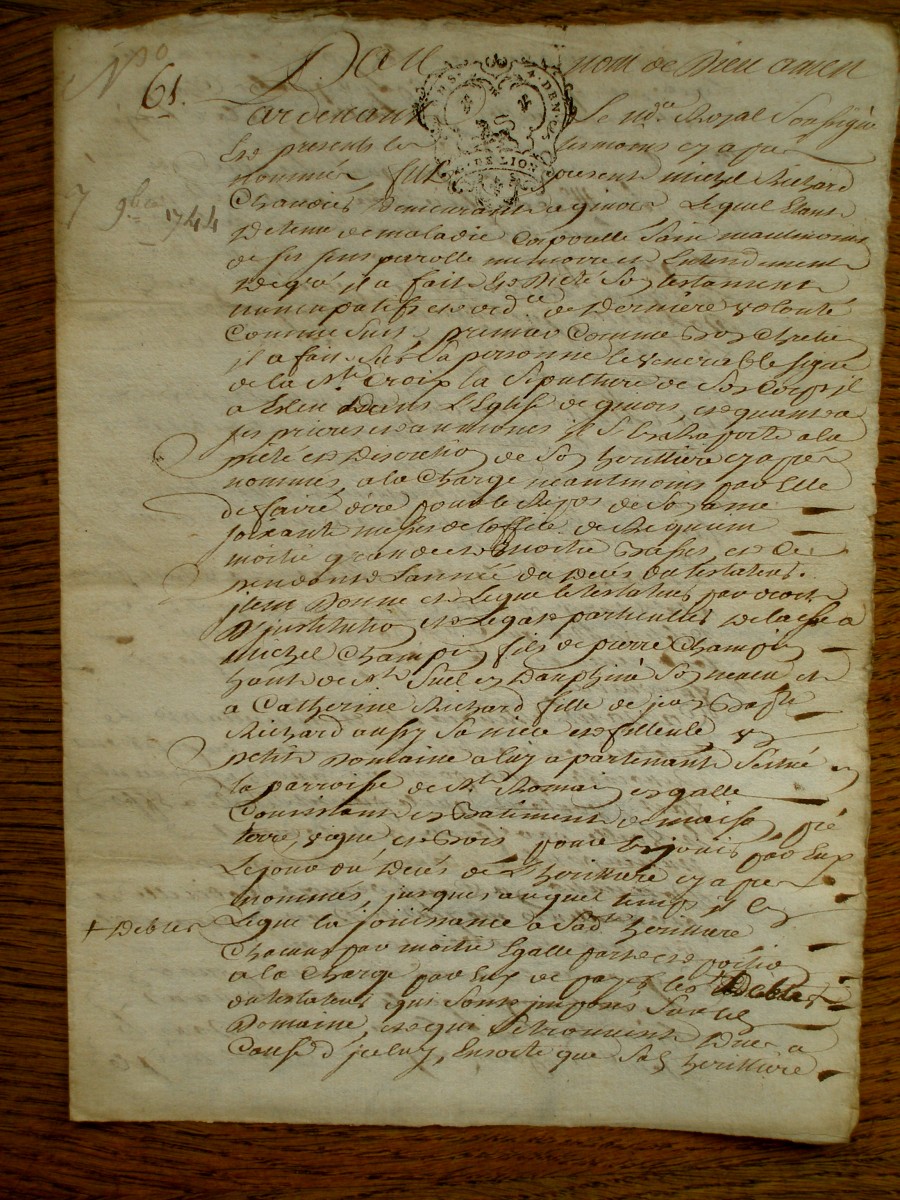 N°
61.
7 9bre 1744
nom de Dieu amen
Pardevant Le no.re Royal Soussigné
Et presents les temoins cy apres
nommés fut present michel Richard
demeurant a ginois Lequel Etant
Detenu de maladie Corporelle Sain neantmoins
de ses sens parolle memoire et Entendement
De gré il a fait et Dicté Son testament
nuncupatif et ord.ce de Derniere volonté
Comme Suit, premier Comme bon Chretien
il a fait Sur Sa personne le venerable Signe
de la S.te Croix la Sepulture de Son Corps il
a Esleu Dans L'Eglise de ginois, et quant a
ses prieres et aumones il S'En Raporte a la
pieté et Discretion de Son heritiere cy apres
nommée, a la Charge neantmoins par Elle
de faire dire pour le Repos de Son ame
soixante messes de l'office de Requiem
moitié grandes et moitié basses, et Ce
pendant L'année du Decés du testateur.
item Donne et Legue le testateur par droit
D'institution et Legat particulier
Michel Champin fils de pierre Champin
en Dauphiné Son neveu et
a Catherine Richard fille de jean Bap.te
Richard aussy Sa niece et filleule
petit Domaine a luy apartenant Scitué en
la parroisse de S.t Romain
Consistant en Batiment de maison, pré
terre, vigne, et Bois pour En jouir par Eux
Le jour du Decés de L'heritiere cy apres
nommée, jusques auquel temps il En
Legue la jouissance a Sad.te heritiere
+ Debtes
Chacun par moitié Egalle part et portion
a la Charge par Eux de payer les Debtes +
du testateur qui Sont imposés Sur led.
Domaine, et qui Se trouveront Dues a
Cause d'iceluy, Ensorte que Sad. heritiere